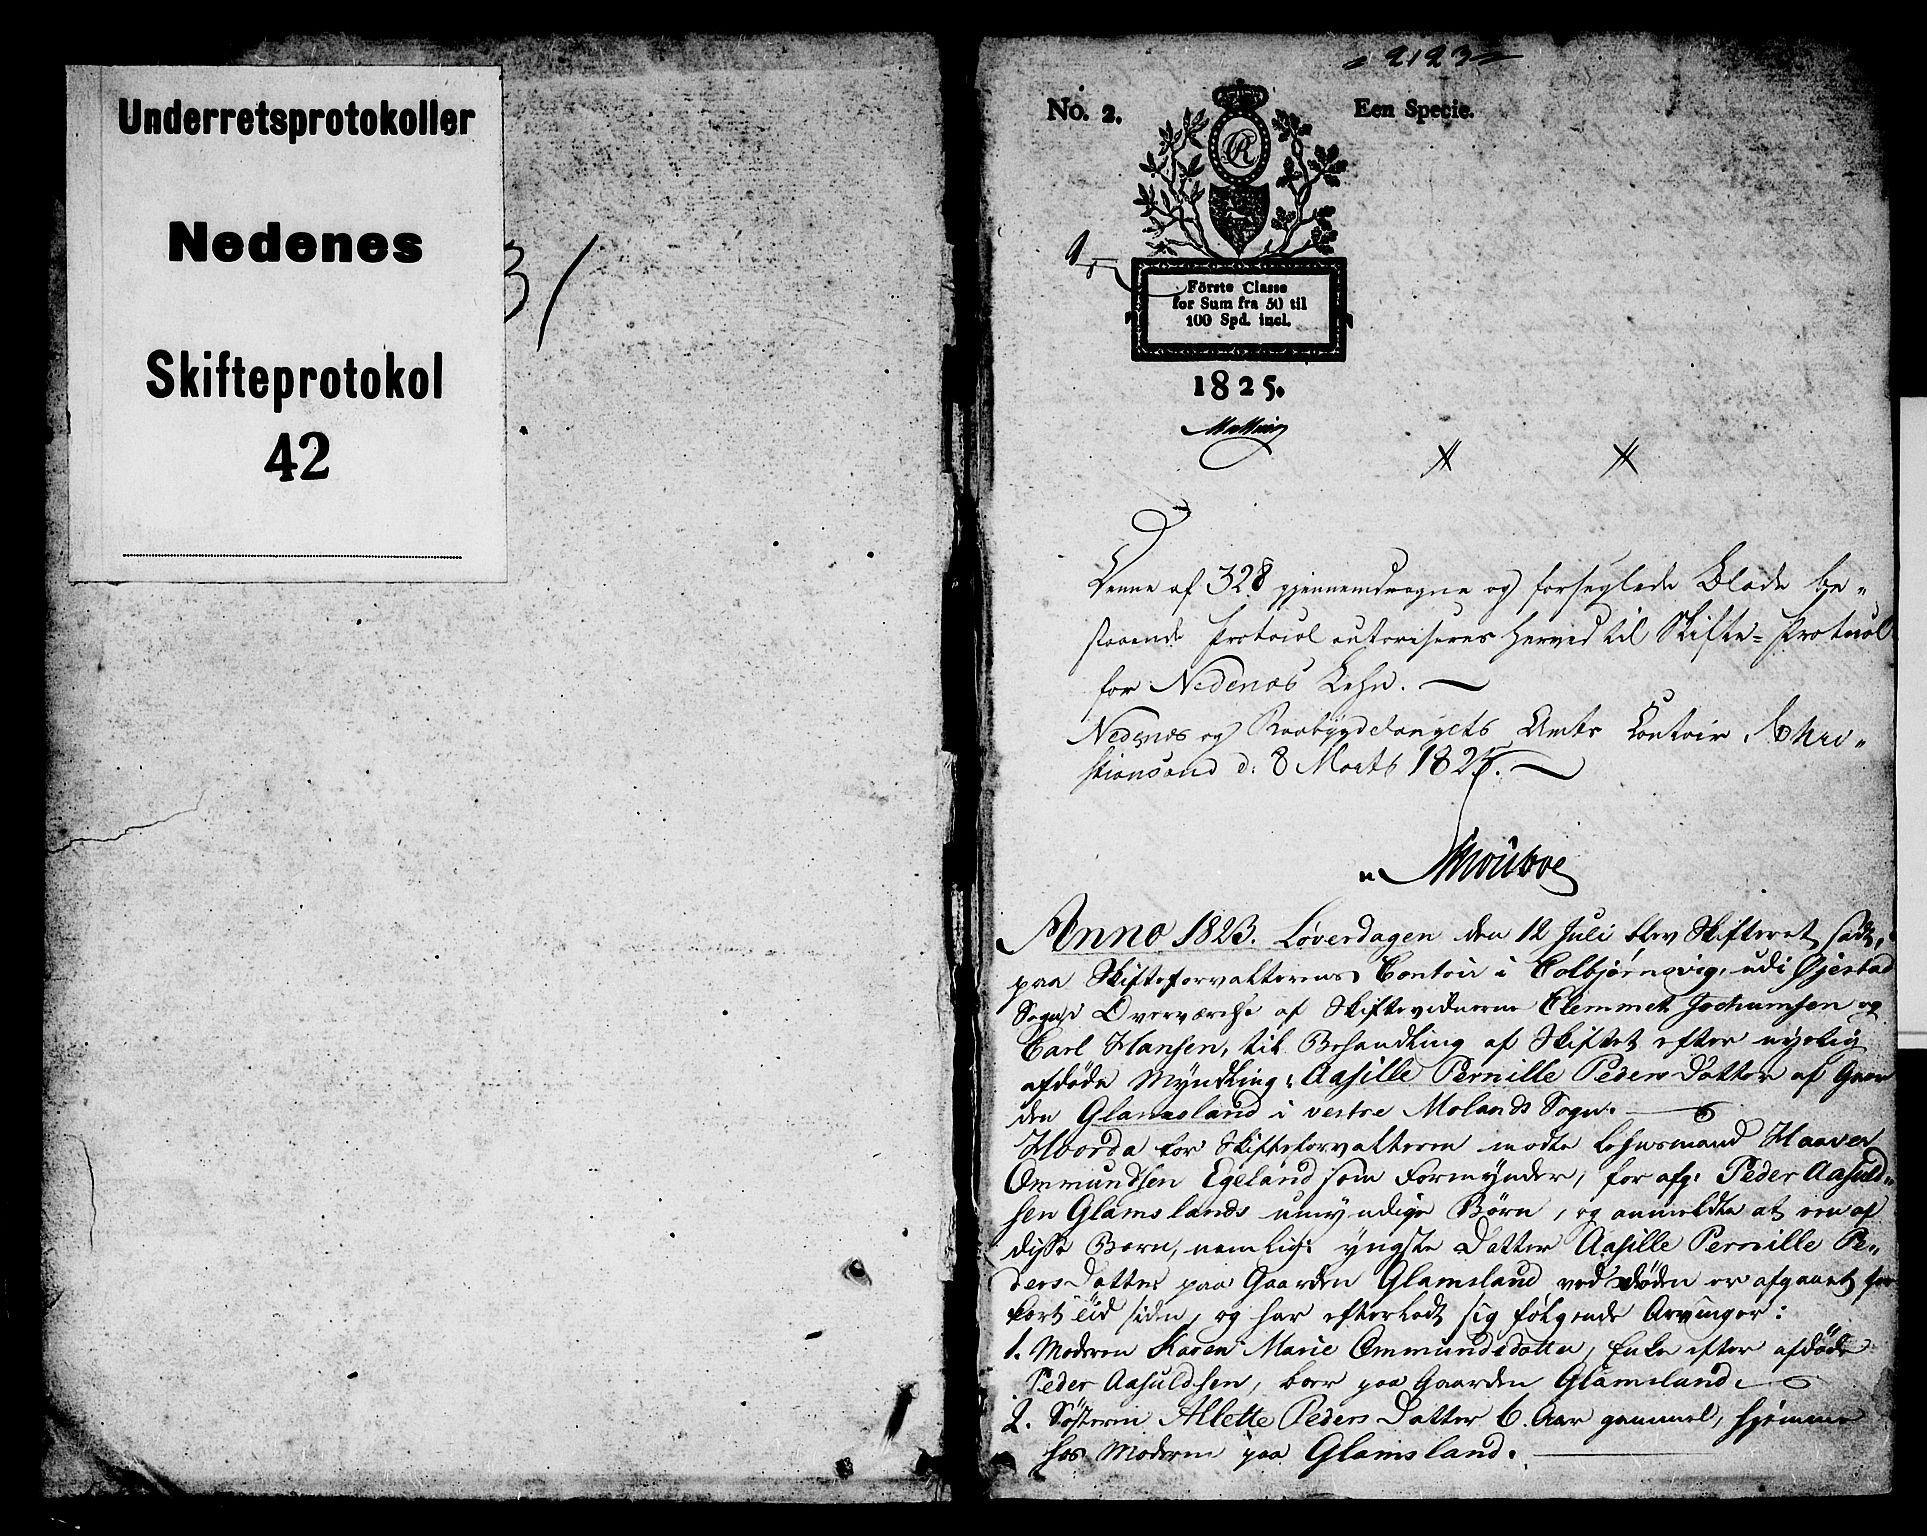 Underretsprotokoller
Nedenes
Skifteprotokol
42
31
2123
No. 2.
Een Specie.
CR
Förste Classe
for Sum fra 50 til
100 Spd. incl.
1825.
Denne af 328 gjennemdragne og forseglede Blade be-
staaende Protocol autoriseres herved til Skifte-Protocol
for Nedenæs Lehn.
Nedenæs og Raabÿgdelaugets Amts Contoir, Chri-
stiansand d: 8 Marts 1825.
Anno 1823. Løverdagen den 12 Juli blev Skifteret sadt,
paa Skifteforvalterens Contoir i Colbjørnsvig, udi Øjestad
Sogn i Overværelse af Skiftevidnerne Clemmet Jochumsen og
Carl Hansen, til Behandling af Skiftet efter nyelig
afdøde Myndling: Aasille Pernille Peders Datter af Gaar
den Glamsland i vestre Molands Sogn.
Hvorda for Skifteforvalteren mødte Lehnsmand Haaver
Ommundsen Egeland som Formynder, for afg: Peder Aasuld-
sen Glamslands umyndige Børn, og anmeldte at een af
disse Børn, nemlig: yngste Datter Aasille Pernille Pe-
ders Datter paa Gaarden Glamsland ved Døden er afgaaet for
kort Tid siden, og har efterladt sig følgende Arvinger:
1. Moderen Karen Marie Ommundsdatter, Enke efter afdøde
Peder Aasuldsen, boer paa Gaarden Glamsland.
2. Søsteren Allette Peders Datter 6. Aar gammel, hjemme
hos Moderen paa Glamsland.